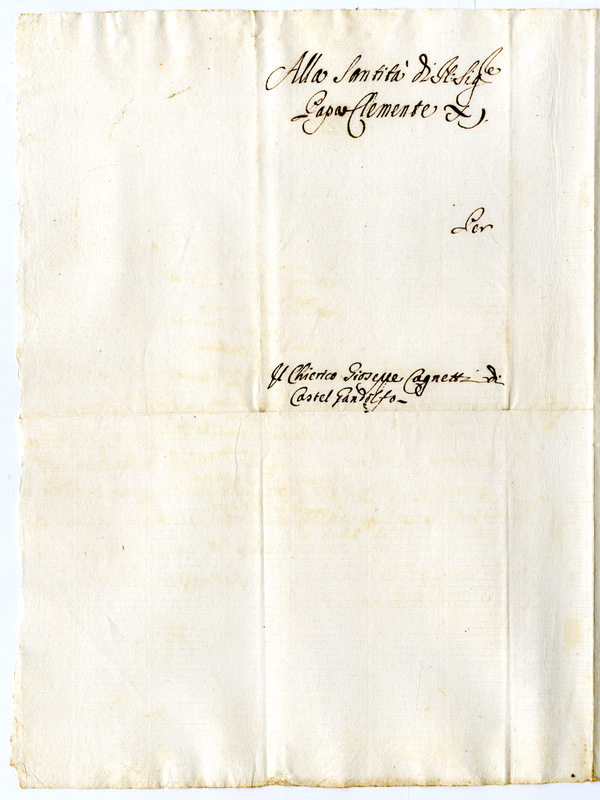 Alla Santità di N. Sig.re
Papa Clemente X.
Per
Il Chierico Gioseppe Cagnetti di
Castel Gandolfo